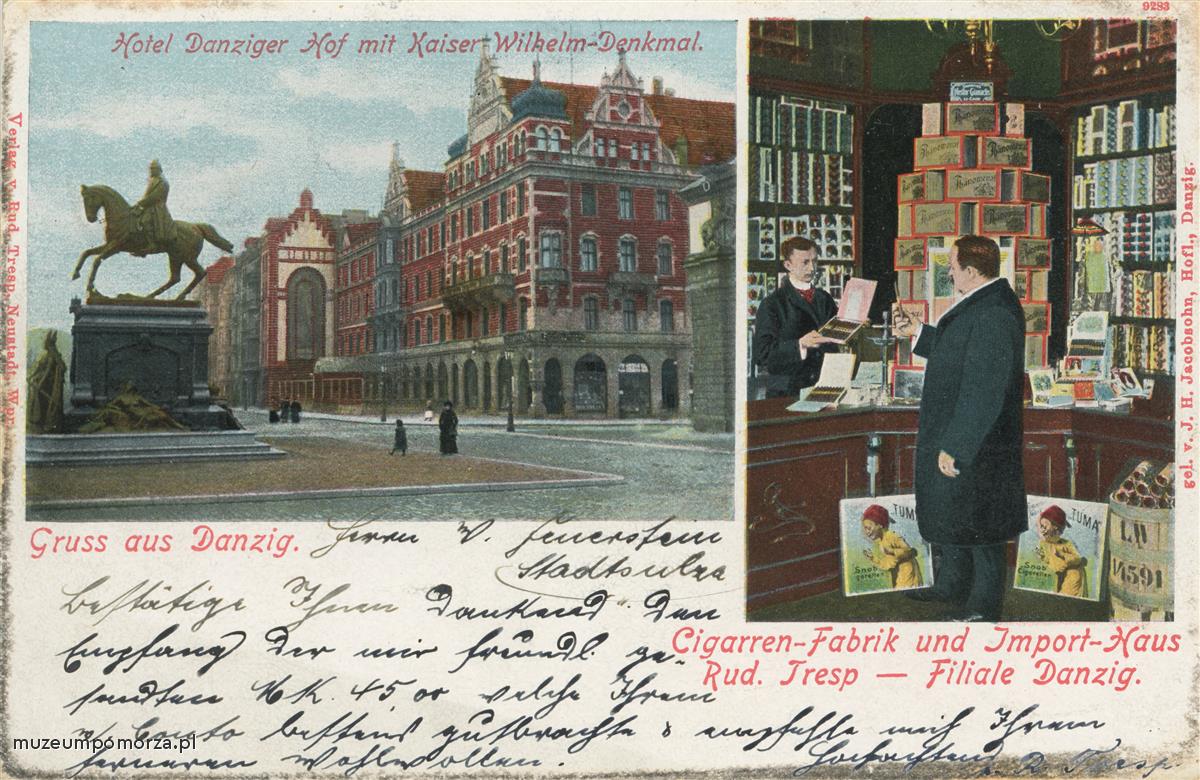 9283
Hotel Danziger Hof mit Kaiser Wilhelm-Denkmal.
Verlag v. Rud. Tresp, Neustadt, Wpr.
Phänomene
Phänomenal
Phänomenal
gel. v. J. H. Jacobsohn, Hofl., Danzig.
TUMA
Snob
Cigaretten
TUMA
Snob
Cigaretten
LW
1/4591
Gruss aus Danzig.
Cigarren-Fabrik und Import-Haus
Rud. Tresp — Filiale Danzig.
Herrn V. Feuerstein
Stadtsulza
Bestätige Ihnen dankend den
Empfang der mir freundl. ge-
sandten MK. 45,00 welche Ihrem
Conto bestens gutbrachte & empfehle mich Ihrem
ferneren Wohlwollen.
Hochachtend
R. Tresp
muzeumpomorza.pl